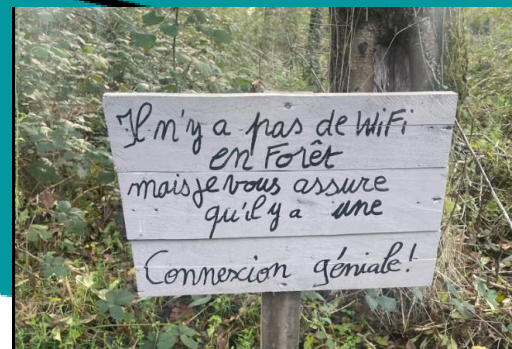 Il n'y a pas de WiFi
en Forêt
mais je vous assure
qu'il y a une
Connexion géniale!